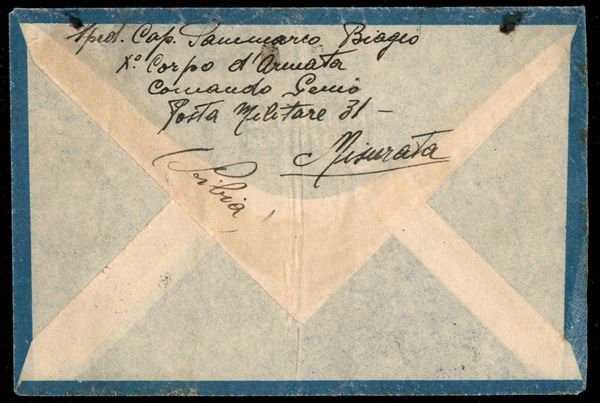 Sped. Cap. Sammarco Biagio
X° Corpo d'Armata
Comando Genio
Posta Militare 31 -
Misurata
(Libia)